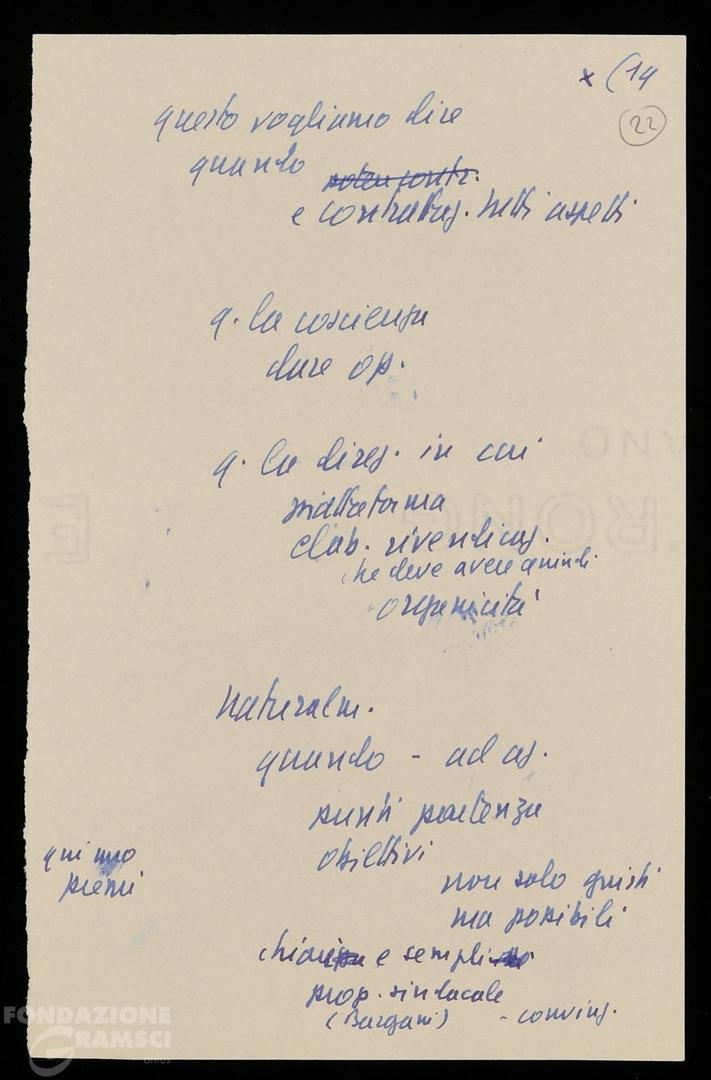 x (14
22
questo vogliamo dire
quando
e contrattaz. tutti aspetti
q. la coscienza
dare op.
q. la direz. in cui
piattaforma
elab. rivendicaz.
che deve avere quindi
organicità
Naturalm.
quando - ad es.
punti partenza
obiettivi
qui uno
non solo giusti
ma possibili
e sempli
prop. sindacale
- convinz.
FONDAZIONE
GRAMSCI
onlus